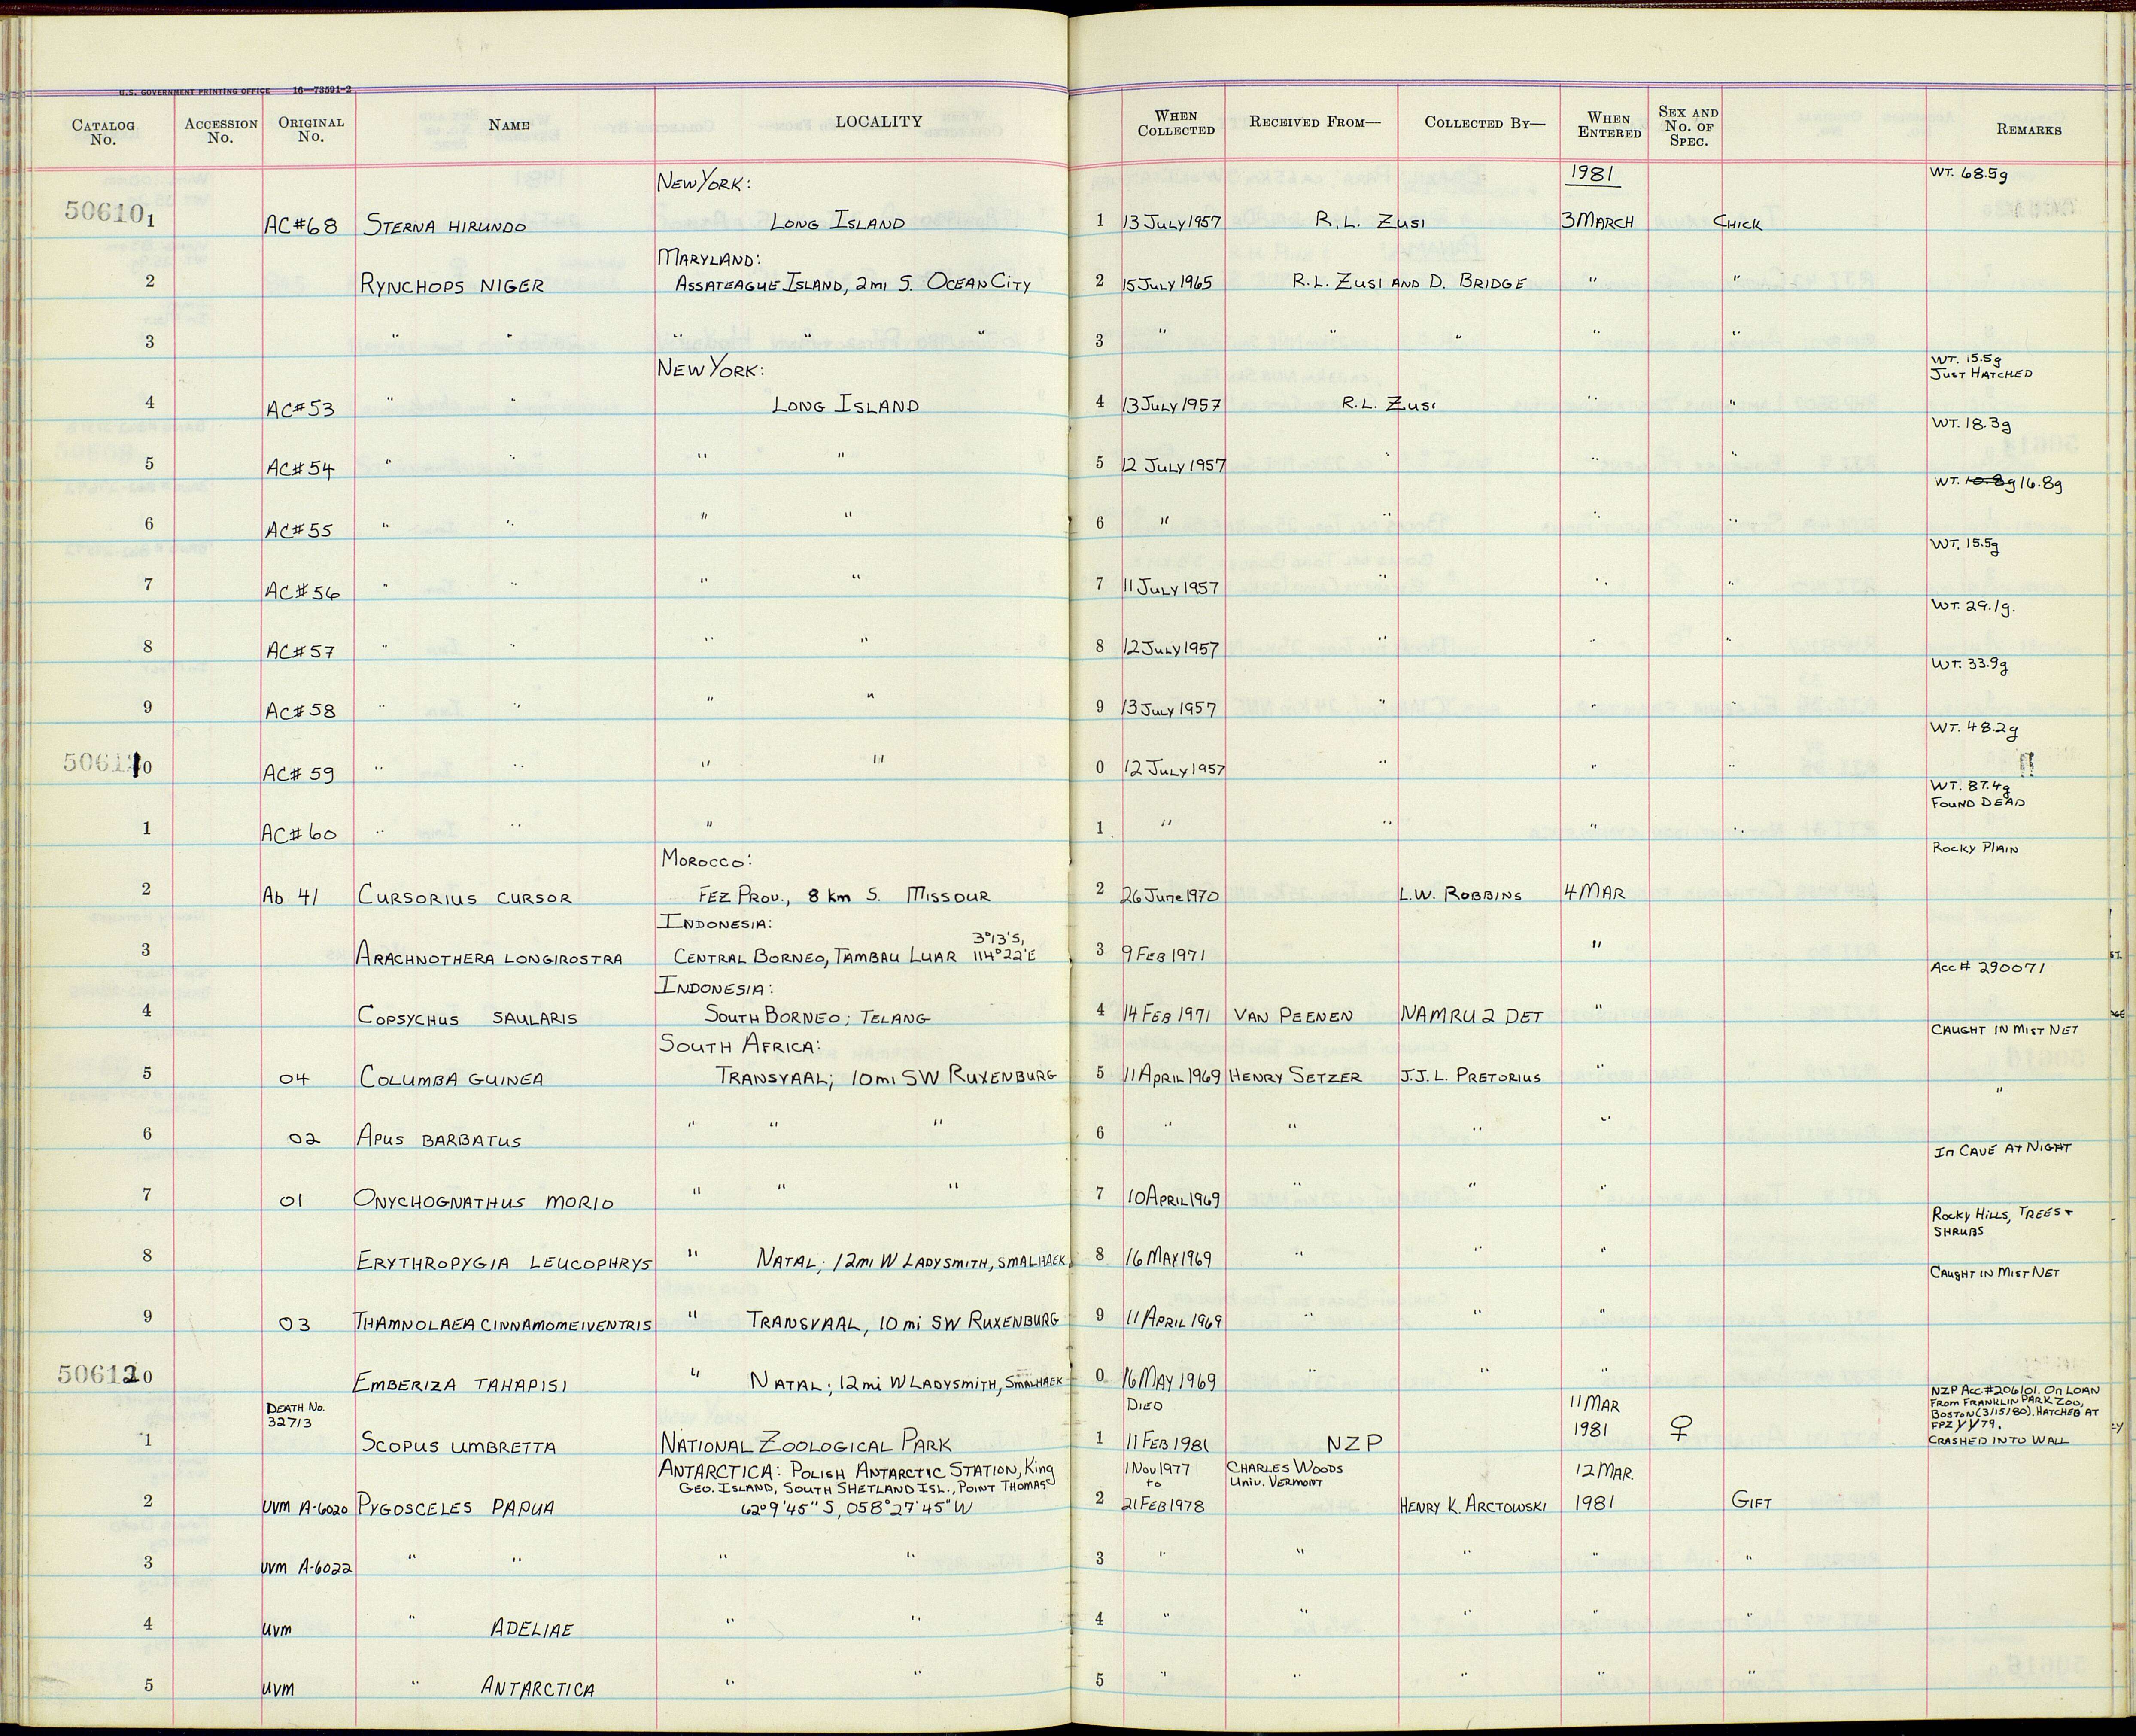 U.S. GOVERNMENT PRINTING OFFICE 16—73591-2
CATALOG No. ACCESSION No. ORIGINAL No. NAME LOCALITY WHEN COLLECTED RECEIVED FROM— COLLECTED BY— WHEN ENTERED SEX AND No. OF SPEC. REMARKS
NEW YORK: 1981 WT. 68.5g
506101 AC#68 STERNA HIRUNDO LONG ISLAND 1 13 JULY 1957 R.L. ZUSI 3 MARCH CHICK
MARYLAND:
2 RYNCHOPS NIGER ASSATEAGUE ISLAND, 2 mi S. OCEAN CITY 2 15 JULY 1965 R.L. ZUSI AND D. BRIDGE " "
3 " " " " " 3 " " " " "
NEW YORK: WT. 15.5g JUST HATCHED
4 AC#53 " " LONG ISLAND 4 13 JULY 1957 R.L. ZUSI " "
WT. 18.3g
5 AC#54 " " " " 5 12 JULY 1957 " " "
WT. 10.8g 16.8g
6 AC#55 " " " " 6 " " " "
WT. 15.5g
7 AC#56 " " " " 7 11 JULY 1957 " " "
WT. 29.1g.
8 AC#57 " " " " 8 12 JULY 1957 " " "
WT. 33.9g
9 AC#58 " " " " 9 13 JULY 1957 " " "
WT. 48.2g
506110 AC#59 " " " " 0 12 JULY 1957 " " "
WT. 87.4g FOUND DEAD
1 AC#60 " " " 1 " " " "
MOROCCO: ROCKY PLAIN
2 Ab 41 CURSORIUS CURSOR FEZ PROV., 8 km S. MISSOUR 2 26 June 1970 L.W. ROBBINS 4 MAR
INDONESIA:
3 ARACHNOTHERA LONGIROSTRA CENTRAL BORNEO, TAMBAU LUAR 3°13'S, 114°22'E 3 9 FEB 1971 "
INDONESIA: Acc# 290071
4 COPSYCHUS SAULARIS SOUTH BORNEO; TELANG 4 14 FEB 1971 VAN PEENEN NAMRU 2 DET "
SOUTH AFRICA: CAUGHT IN MIST NET
5 04 COLUMBA GUINEA TRANSVAAL; 10mi SW RUXENBURG 5 11 APRIL 1969 HENRY SETZER J.J.L. PRETORIUS "
"
6 02 APUS BARBATUS " " " 6 " " " "
IN CAVE AT NIGHT
7 01 ONYCHOGNATHUS MORIO " " " 7 10 APRIL 1969 " " "
ROCKY HILLS, TREES + SHRUBS
8 ERYTHROPYGIA LEUCOPHRYS " NATAL; 12mi W LADYSMITH, SMALHAEK 8 16 MAY 1969 " " "
CAUGHT IN MIST NET
9 03 THAMNOLAEA CINNAMOMEIVENTRIS " TRANSVAAL, 10 mi SW RUXENBURG 9 11 APRIL 1969 " " "
506120 EMBERIZA TAHAPISI " NATAL; 12 mi W LADYSMITH, SMALHAEK 0 16 MAY 1969 " " "
DEATH No. 32713 DIED 11 MAR NZP Acc.#206101. ON LOAN
FROM FRANKLIN PARK ZOO,
BOSTON (3/15/80). HATCHED AT
1 SCOPUS UMBRETTA NATIONAL ZOOLOGICAL PARK 1 11 FEB 1981 NZP 1981 ♀ CRASHED INTO WALL
ANTARCTICA: POLISH ANTARCTIC STATION, King 1 Nov 1977 CHARLES WOODS 12 MAR.
GEO. ISLAND, SOUTH SHETLAND ISL., POINT THOMAS to Univ. VERMONT
2 UVM A-6020 PYGOSCELES PAPUA 62°9'45" S, 058°27'45" W 2 21 FEB 1978 HENRY K. ARCTOWSKI 1981 GIFT
3 UVM A-6022 " " " " 3 " " " " "
4 UVM " ADELIAE " " 4 " " " " "
5 UVM " ANTARCTICA " " 5 " " " " "